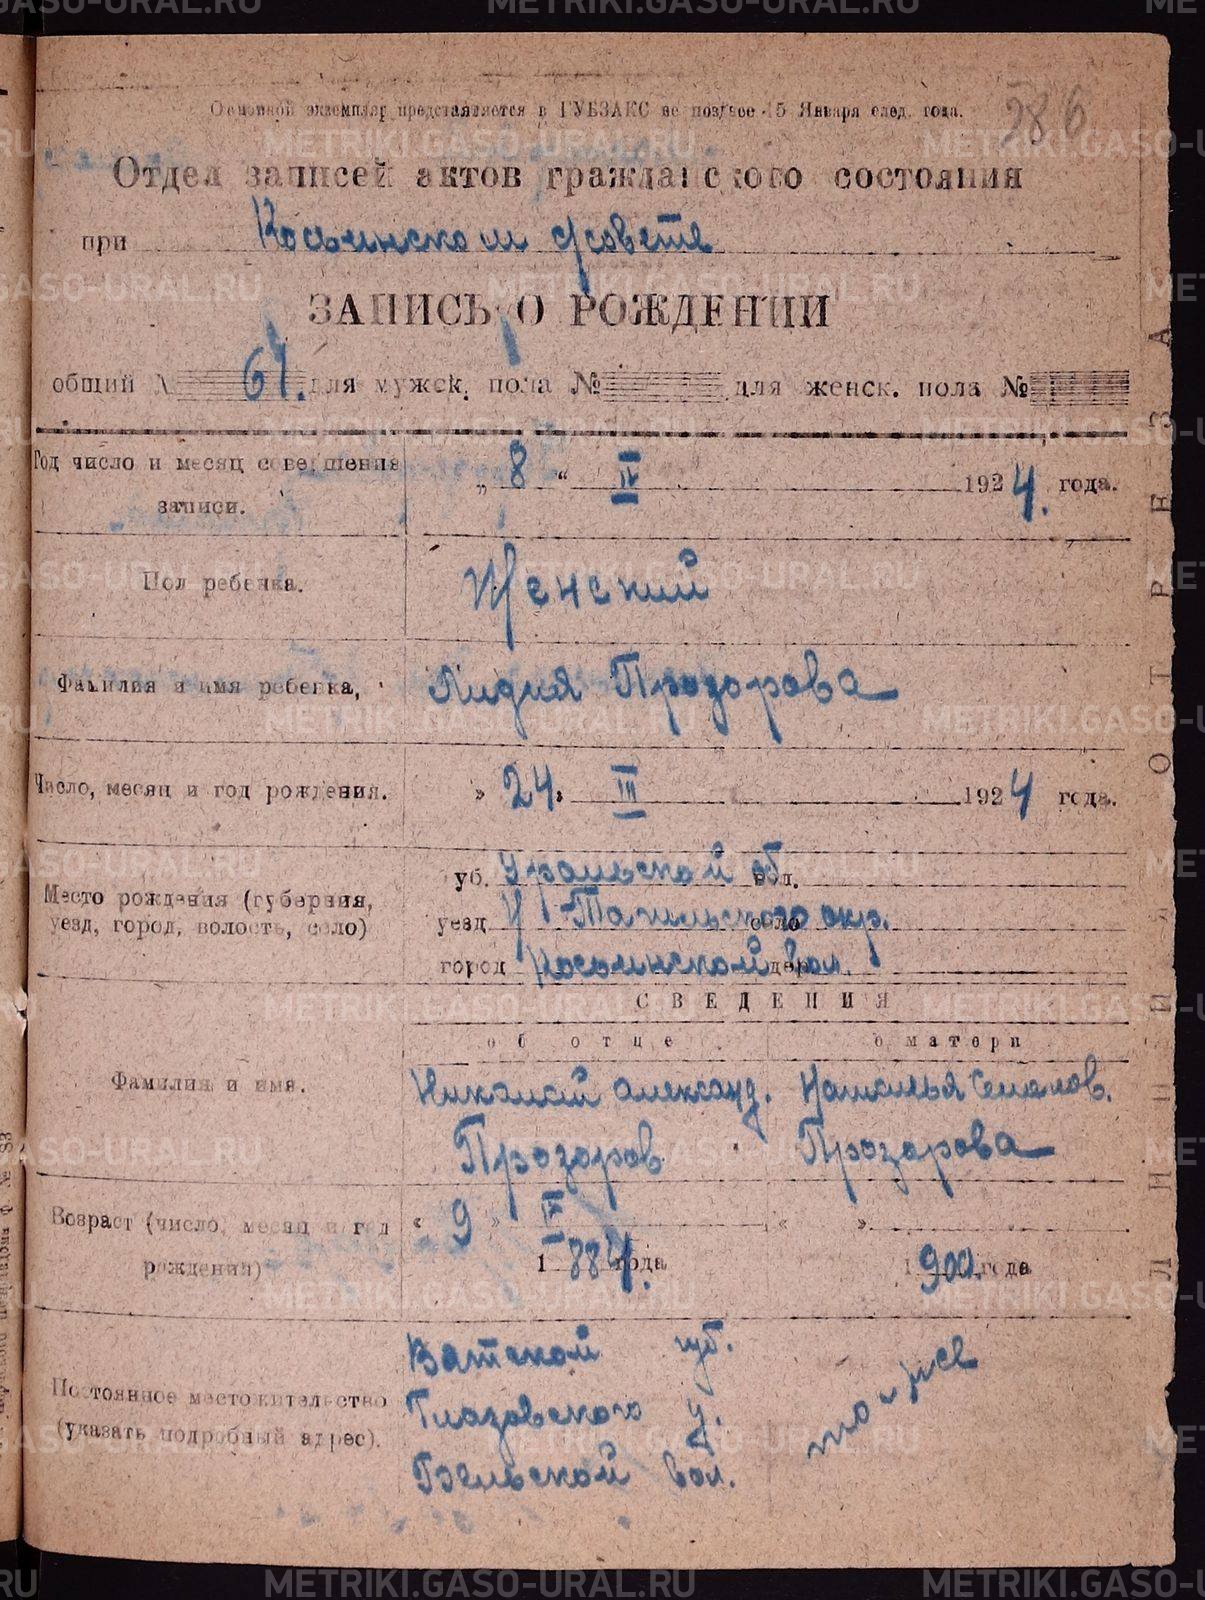 286
Основной экземпляр представляется в ГУБЗАКС не позднее 15 Января след. года.
Отдел записей актов гражданского состояния
при Косьинском с/совете
ЗАПИСЬ О РОЖДЕНИИ
общий № 64. для мужск. пола № для женск. пола №
Год число и месяц совершения записи.
„ 8 “ IV 1924. года.
Пол ребенка.
Женский
Фамилия и имя ребенка,
Лидия Прозорова
Число, месяц и год рождения.
» 24 » III 1924 года.
Место рождения (губерния, уезд, город, волость, село)
губ. Уральской об. вол.
уезд Н-Тагильского окр. село
город Косьинской вол. дер.
СВЕДЕНИЯ
об отце
о матери
Фамилия и имя.
Николай Александ. Прозоров
Наталья
Прозорова
Возраст (число, месяц и год рождения)
« 9 » IX 1884. года
« » 1900 года
Постоянное местожительство (указать подробный адрес).
Вятской губ.
Глазовского у.
Бельской вол.
то-же
ЛИНИЯ ОТРЕЗА
METRIKI.GASO-URAL.RU